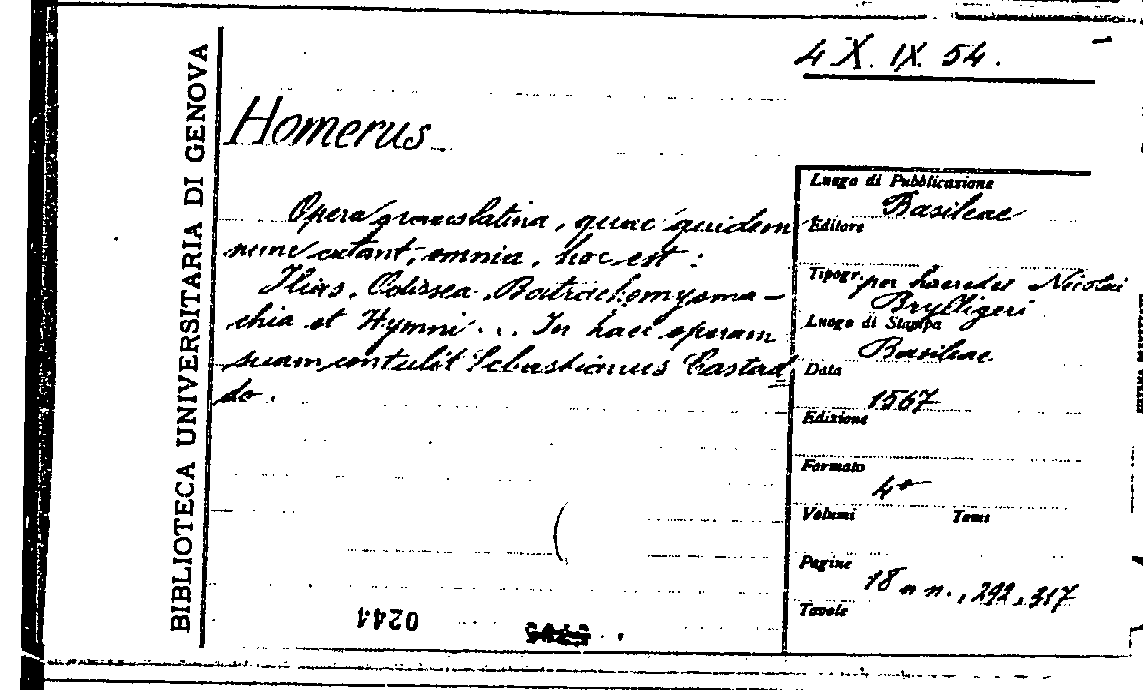 4 X. IX. 54.
BIBLIOTECA UNIVERSITARIA DI GENOVA
Homerus
Opera graecolatina, quae quidem
nunc extant, omnia, hoc est:
Ilias, Odissea, Batrachomyoma-
chia et Hymni... In haec operam
suam contulit Sebastianus Castad
do.
Luogo di Pubblicazione
Basileae
Editore
Tipogr. per haeredes Nicolai
Bryllgeri
Luogo di Stampa
Basileae
Data
1567
Edizione
Formato
4°
Volumi Tomi
Pagine
18 n n., 292, 317
Tavole
0244